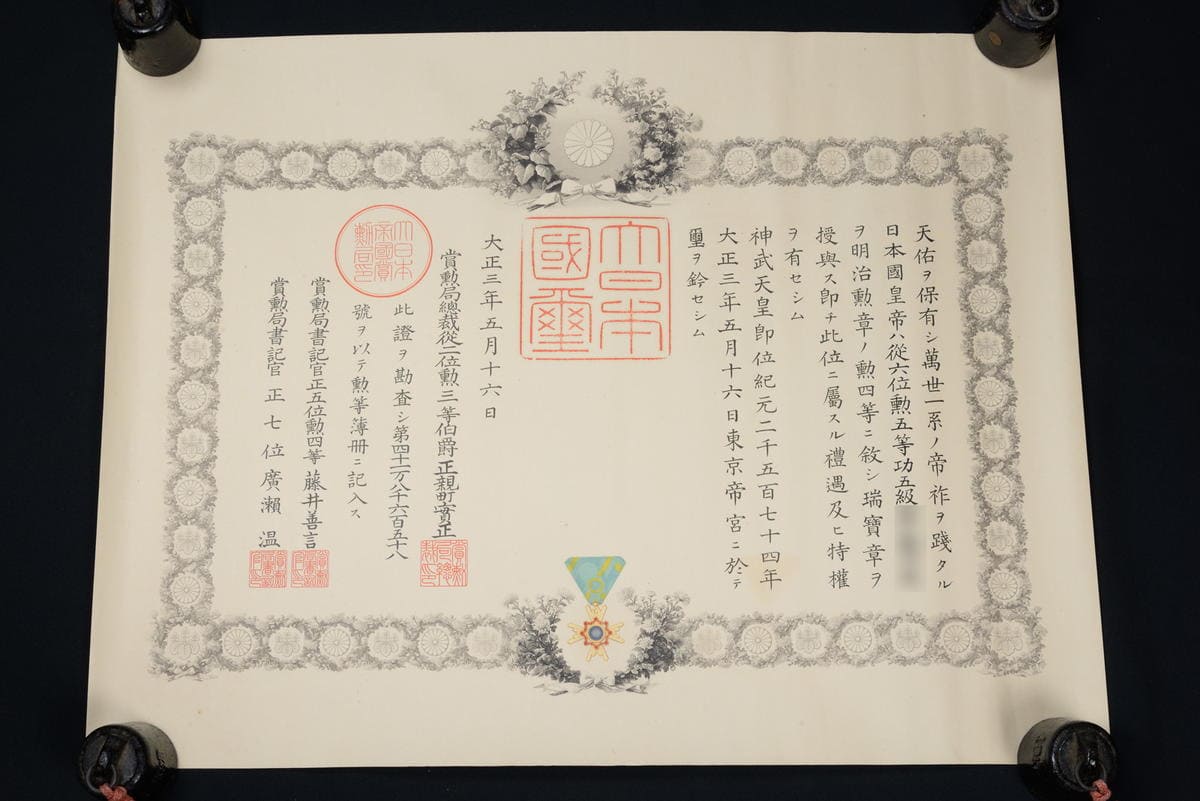 天佑ヲ保有シ萬世一系ノ帝祚ヲ踐タル
日本國皇帝ハ從六位勲五等功五級
ヲ明治勲章ノ勲四等ニ敘シ瑞寶章ヲ
授與ス即チ此位ニ屬スル禮遇及ヒ特權
ヲ有セシム
神武天皇即位紀元二千五百七十四年
大正三年五月十六日東京帝宮ニ於テ
璽ヲ鈐セシム
大日本
國璽
大正三年五月十六日
賞勲局總裁從二位勲三等伯爵正親町實正
大日本
帝國賞
勲局印
此證ヲ勘査シ第四十二万八千六百五十八
號ヲ以テ勲等簿册ニ記入ス
賞勲局書記官正五位勲四等藤井善言
賞勲局書記官正七位廣瀬温